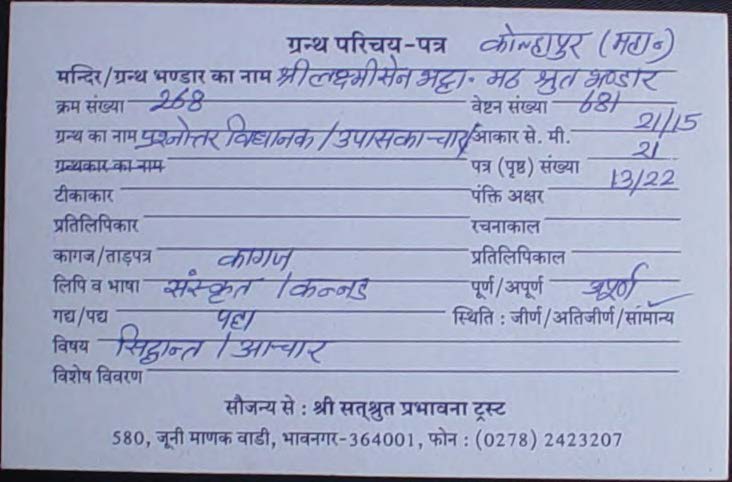 ग्रन्थ परिचय-पत्र कोल्हापुर (महा॰)
मन्दिर/ग्रन्थ भण्डार का नाम श्रीलक्ष्मीसेन भट्टा॰ मठ श्रुत भण्डार
क्रम संख्या 268 वेष्टन संख्या 681
ग्रन्थ का नाम प्रश्नोत्तर विधानक / उपासकाचार आकार से. मी. 21/15
ग्रन्थकार का नाम पत्र (पृष्ठ) संख्या 21
टीकाकार पंक्ति अक्षर 13/22
प्रतिलिपिकार रचनाकाल
कागज/ताड़पत्र कागज प्रतिलिपिकाल
लिपि व भाषा संस्कृत / कन्नड पूर्ण/अपूर्ण
गद्य/पद्य पद्य स्थिति : जीर्ण/अतिजीर्ण/सामान्य
विषय सिद्धान्त / आचार
विशेष विवरण
सौजन्य से : श्री सत्श्रुत प्रभावना ट्रस्ट
580, जूनी माणक वाडी, भावनगर-364001, फोन : (0278) 2423207